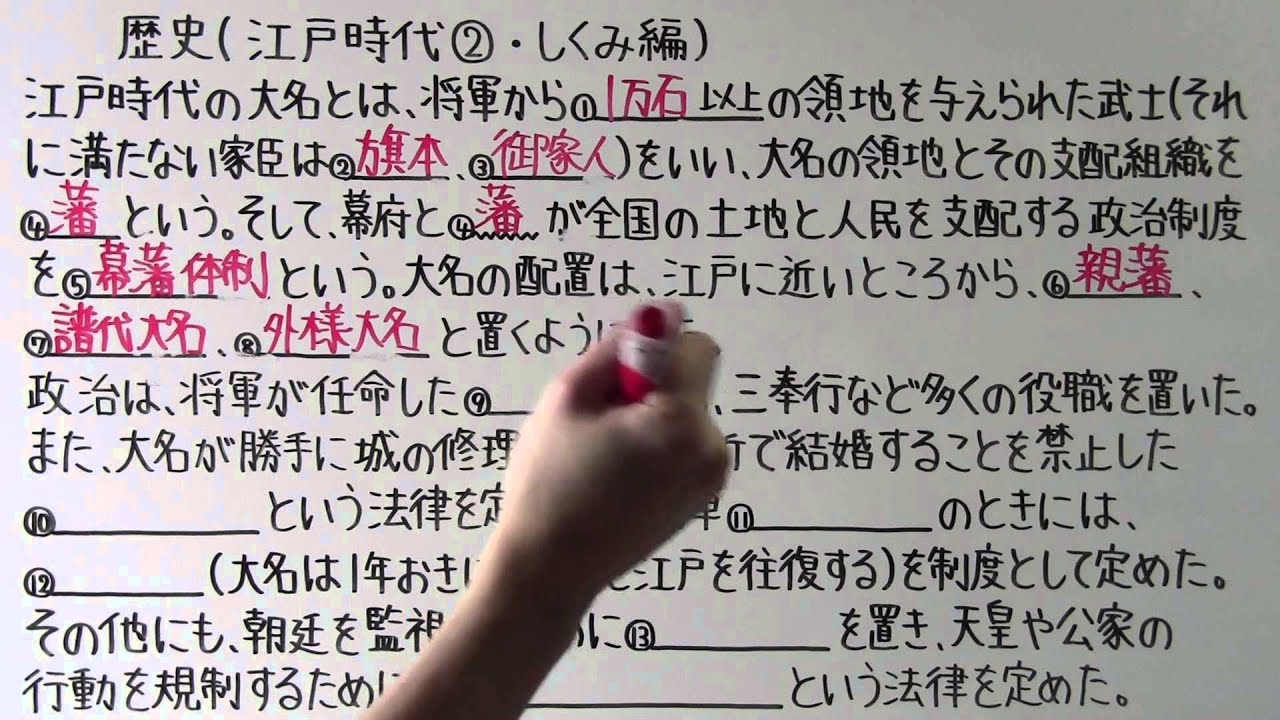 歴史(江戸時代②・しくみ編)
江戸時代の大名とは、将軍から①1万石以上の領地を与えられた武士(それ
に満たない家臣は②旗本、③御家人)をいい、大名の領地とその支配組織を
④藩という。そして、幕府と④藩が全国の土地と人民を支配する政治制度
を⑤幕藩体制という。大名の配置は、江戸に近いところから、⑥親藩、
⑦譜代大名、⑧外様大名と置くように
政治は、将軍が任命した⑨、三奉行など多くの役職を置いた。
また、大名が勝手に城の修理 所で結婚することを禁止した
⑩という法律を定 ⑪のときには、
⑫(大名は1年おきに と江戸を往復する)を制度として定めた。
その他にも、朝廷を監視 に⑬を置き、天皇や公家の
行動を規制するために という法律を定めた。